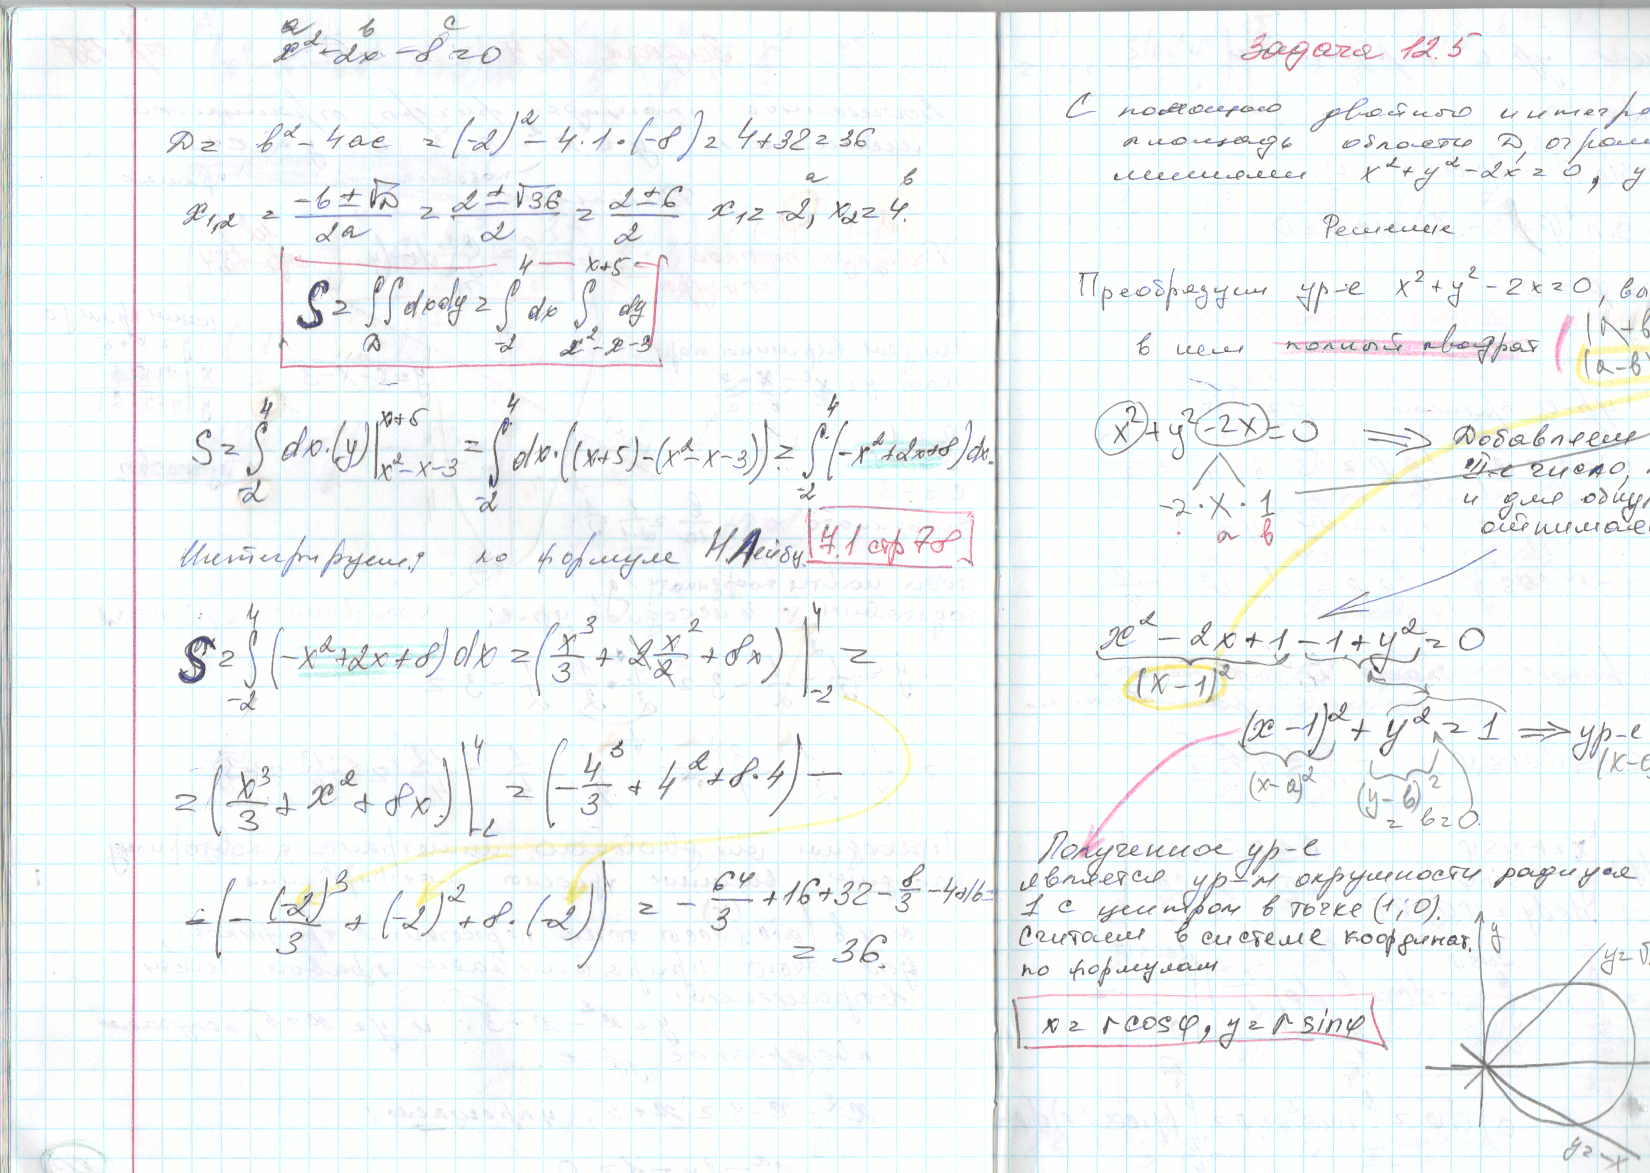 a b c
x² - 2x - 8 = 0
D = b² - 4ac = (-2)² - 4·1·(-8) = 4+32 = 36
x₁,₂ = (-b ± √D)/2a = (2 ± √36)/2 = (2 ± 6)/2 x₁ = -2, x₂ = 4.
a b
S = ∬_D dxdy = ∫_{-2}^{4} dx ∫_{x²-x-3}^{x+5} dy
S = ∫_{-2}^{4} dx·(y)|_{x²-x-3}^{x+5} = ∫_{-2}^{4} dx·((x+5)-(x²-x-3)) = ∫_{-2}^{4} (-x²+2x+8)dx.
Интегрируем по формуле Н.Лейбн. 7.1 стр 78
S = ∫_{-2}^{4} (-x²+2x+8)dx = (x³/3 + 2x²/2 + 8x)|_{-2}^{4} =
= (x³/3 + x² + 8x)|_{-2}^{4} = (-4³/3 + 4² + 8·4) -
- (-(-2)³/3 + (-2)² + 8·(-2)) = -64/3 + 16+32 - 8/3 - 4+16 =
= 36.
Задача 12.5
С помощью двойного интегра
площадь области D, огран
линиями x²+y²-2x=0, y
Решение
Преобразуем ур-е x²+y²-2x=0, вы
в нем полный квадрат (a+b
(a-b)
x²+y²-2x=0 ⇒ Добавляем
II-е число,
-2·x·1 и для общ
a b отнимае
x²-2x+1-1+y²=0
(x-1)²
(x-1)²+y²=1 ⇒ ур-е
(x-a)² (y-b)² (x-
= b=0.
Полученное ур-е
является ур-м окружности радиуса
1 с центром в точке (1;0).
Считаем в системе координат.
по формулам
x = r cosφ, y = r sinφ
y
y=√
y=-x